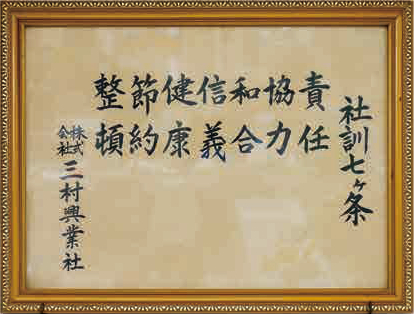 社訓七ヶ条
責任
協力
和合
信義
健康
節約
整頓
株式会社三村興業社